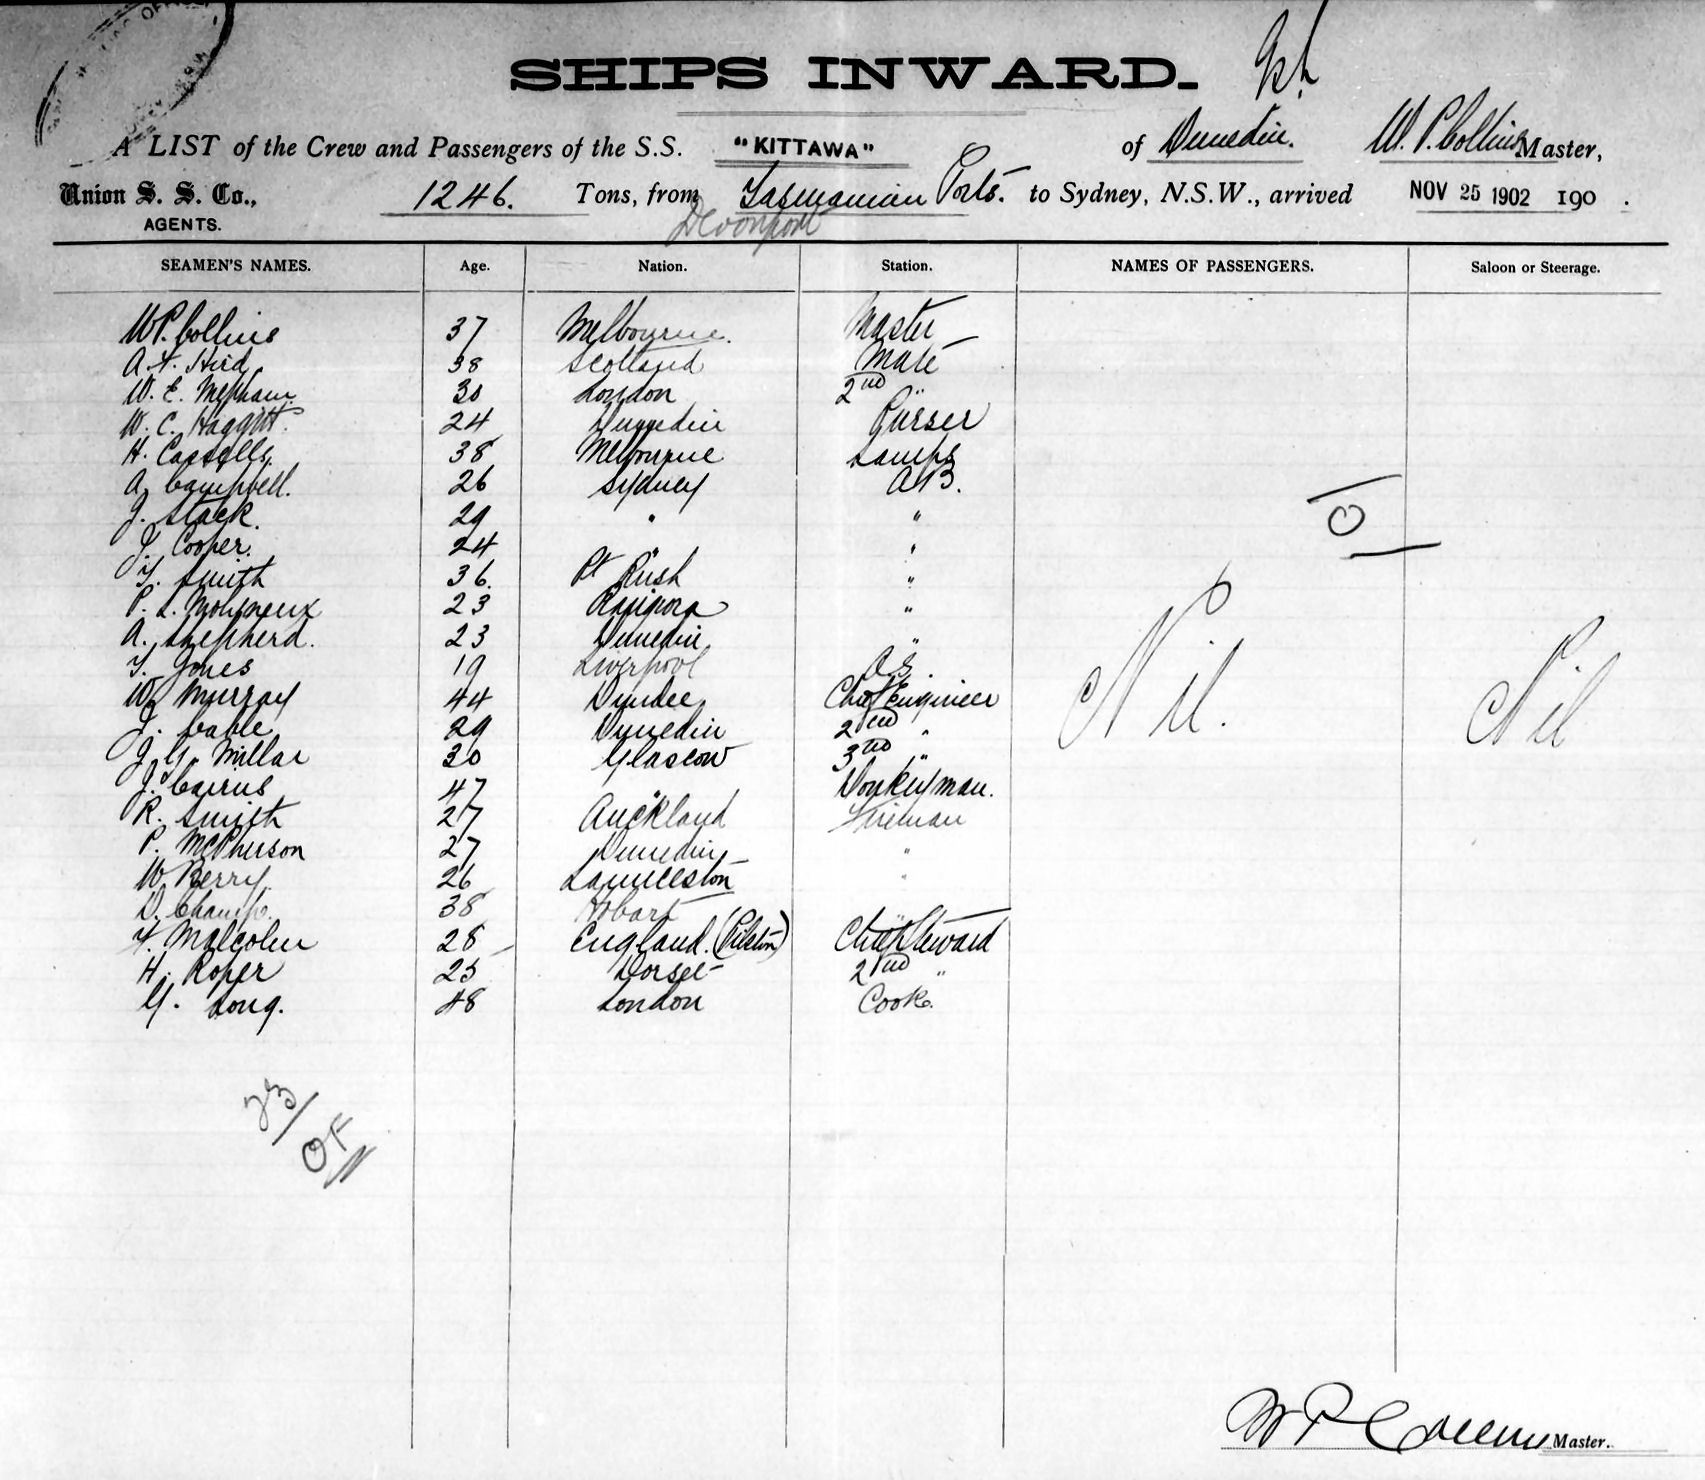 SHIPS INWARD.
A LIST of the Crew and Passengers of the S.S. "KITTAWA" of Dunedin. W. P. Collins Master,
Union S. S. Co., 1246. Tons, from Tasmanian Ports. to Sydney, N.S.W., arrived NOV 25 1902 190 .
AGENTS. Devonport
SEAMEN'S NAMES. Age. Nation. Station. NAMES OF PASSENGERS. Saloon or Steerage.
W P. Collins 37 Melbourne. Master
A. F. Hird 38 Scotland Mate
W. E. Mepham. 30 London 2nd "
W. C. Haggitt. 24 Dunedin Purser
H. Cassells. 38 Melbourne Lamps
A. Campbell. 26 Sydney A B.
J. Stack. 29 " "
J. Cooper. 24 " "
T. Smith 36. Pt Rush "
P. L. Molyneux 23 "
A. Shepherd. 23 Dunedin "
T. Jones 19 Liverpool O.S.
W. Murray 44 Dundee Chief Engineer
J. Cable 29 Dunedin 2nd "
J. G. Millar 30 Glascow 3rd "
J. Cairns 47 " Donkeyman.
R. Smith 27 Auckland Fireman
P. McPherson 27 Dunedin "
W Berry. 26 Launceston "
D. Champ. 38 Hobart "
F. Malcolm 28 England. Chief Steward
H. Roper 25 Dorset 2nd "
G. Long. 48 London Cook.
O
Nil. Nil
23
OF
W P Collins Master.